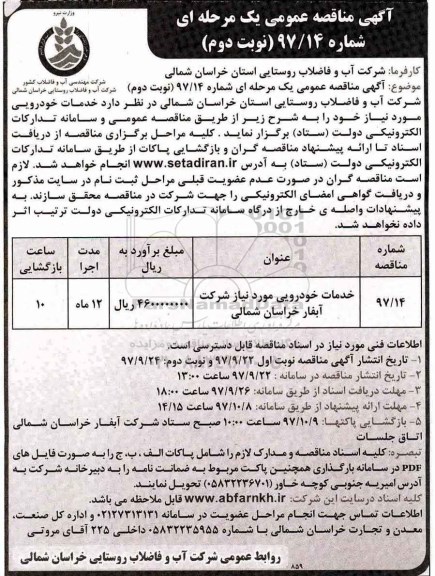 وزارت نیرو
شرکت مهندسی آب و فاضلاب کشور
شرکت آب و فاضلاب روستایی خراسان شمالی
آگهی مناقصه عمومی یک مرحله ای
شماره ۹۷/۱۴ (نوبت دوم)
کارفرما: شرکت آب و فاضلاب روستایی استان خراسان شمالی
موضوع: آگهی مناقصه عمومی یک مرحله ای شماره ۹۷/۱۴ (نوبت دوم)
شرکت آب و فاضلاب روستایی استان خراسان شمالی در نظر دارد خدمات خودرویی
مورد نیاز خود را به شرح زیر از طریق مناقصه عمومی و سامانه تدارکات
الکترونیکی دولت (ستاد) برگزار نماید. کلیه مراحل برگزاری مناقصه از دریافت
اسناد تا ارائه پیشنهاد مناقصه گران و بازگشایی پاکات از طریق سامانه تدارکات
الکترونیکی دولت (ستاد) به آدرس www.setadiran.ir انجام خواهد شد. لازم
است مناقصه گران در صورت عدم عضویت قبلی مراحل ثبت نام در سایت مذکور
و دریافت گواهی امضای الکترونیکی را جهت شرکت در مناقصه محقق سازند. به
پیشنهادات واصله ی خارج از درگاه سامانه تدارکات الکترونیکی دولت ترتیب اثر
داده نخواهد شد.
شماره مناقصه	عنوان	مبلغ برآورد به ریال	مدت اجرا	ساعت بازگشایی
۹۷/۱۴	خدمات خودرویی مورد نیاز شرکت آبفار خراسان شمالی	ریال	۱۲ ماه	۱۰
اطلاعات فنی مورد نیاز در اسناد مناقصه قابل دسترسی است:
۱- تاریخ انتشار آگهی مناقصه نوبت اول ۹۷/۹/۲۲ و نوبت دوم: ۹۷/۹/۲۴
۲- تاریخ انتشار مناقصه در سامانه: ۹۷/۹/۲۲ ساعت ۱۳:۰۰
۳- مهلت دریافت اسناد از طریق سامانه: ۹۷/۹/۲۶ ساعت ۱۸:۰۰
۴- مهلت ارائه پیشنهاد از طریق سامانه: ۹۷/۱۰/۸ ساعت ۱۴/۱۵
۵- بازگشایی پاکتها: ۹۷/۱۰/۹ ساعت ۱۰:۰۰ صبح ستاد شرکت آبفار خراسان شمالی
اتاق جلسات
تبصره: کلیه اسناد مناقصه و مدارک لازم را شامل پاکات الف، ب، ج را به صورت فایل های
PDF در سامانه بارگذاری همچنین پاکت مربوط به ضمانت نامه را به دبیرخانه شرکت به
آدرس امیریه جنوبی کوچه خاور (۰۵۸۳۲۲۳۶۷۰۱) تحویل نمایند.
کلیه اسناد درسایت این شرکت: www.abfarnkh.ir قابل ملاحظه می باشد.
اطلاعات تماس جهت انجام مراحل عضویت در سامانه ۰۲۱۲۷۳۱۳۱۳۱ و اداره کل صنعت،
معدن و تجارت خراسان شمالی با شماره ۰۵۸۳۲۲۳۵۹۵۵ داخلی ۲۲۵ آقای مروتی
روابط عمومی شرکت آب و فاضلاب روستایی خراسان شمالی
۸۵۹